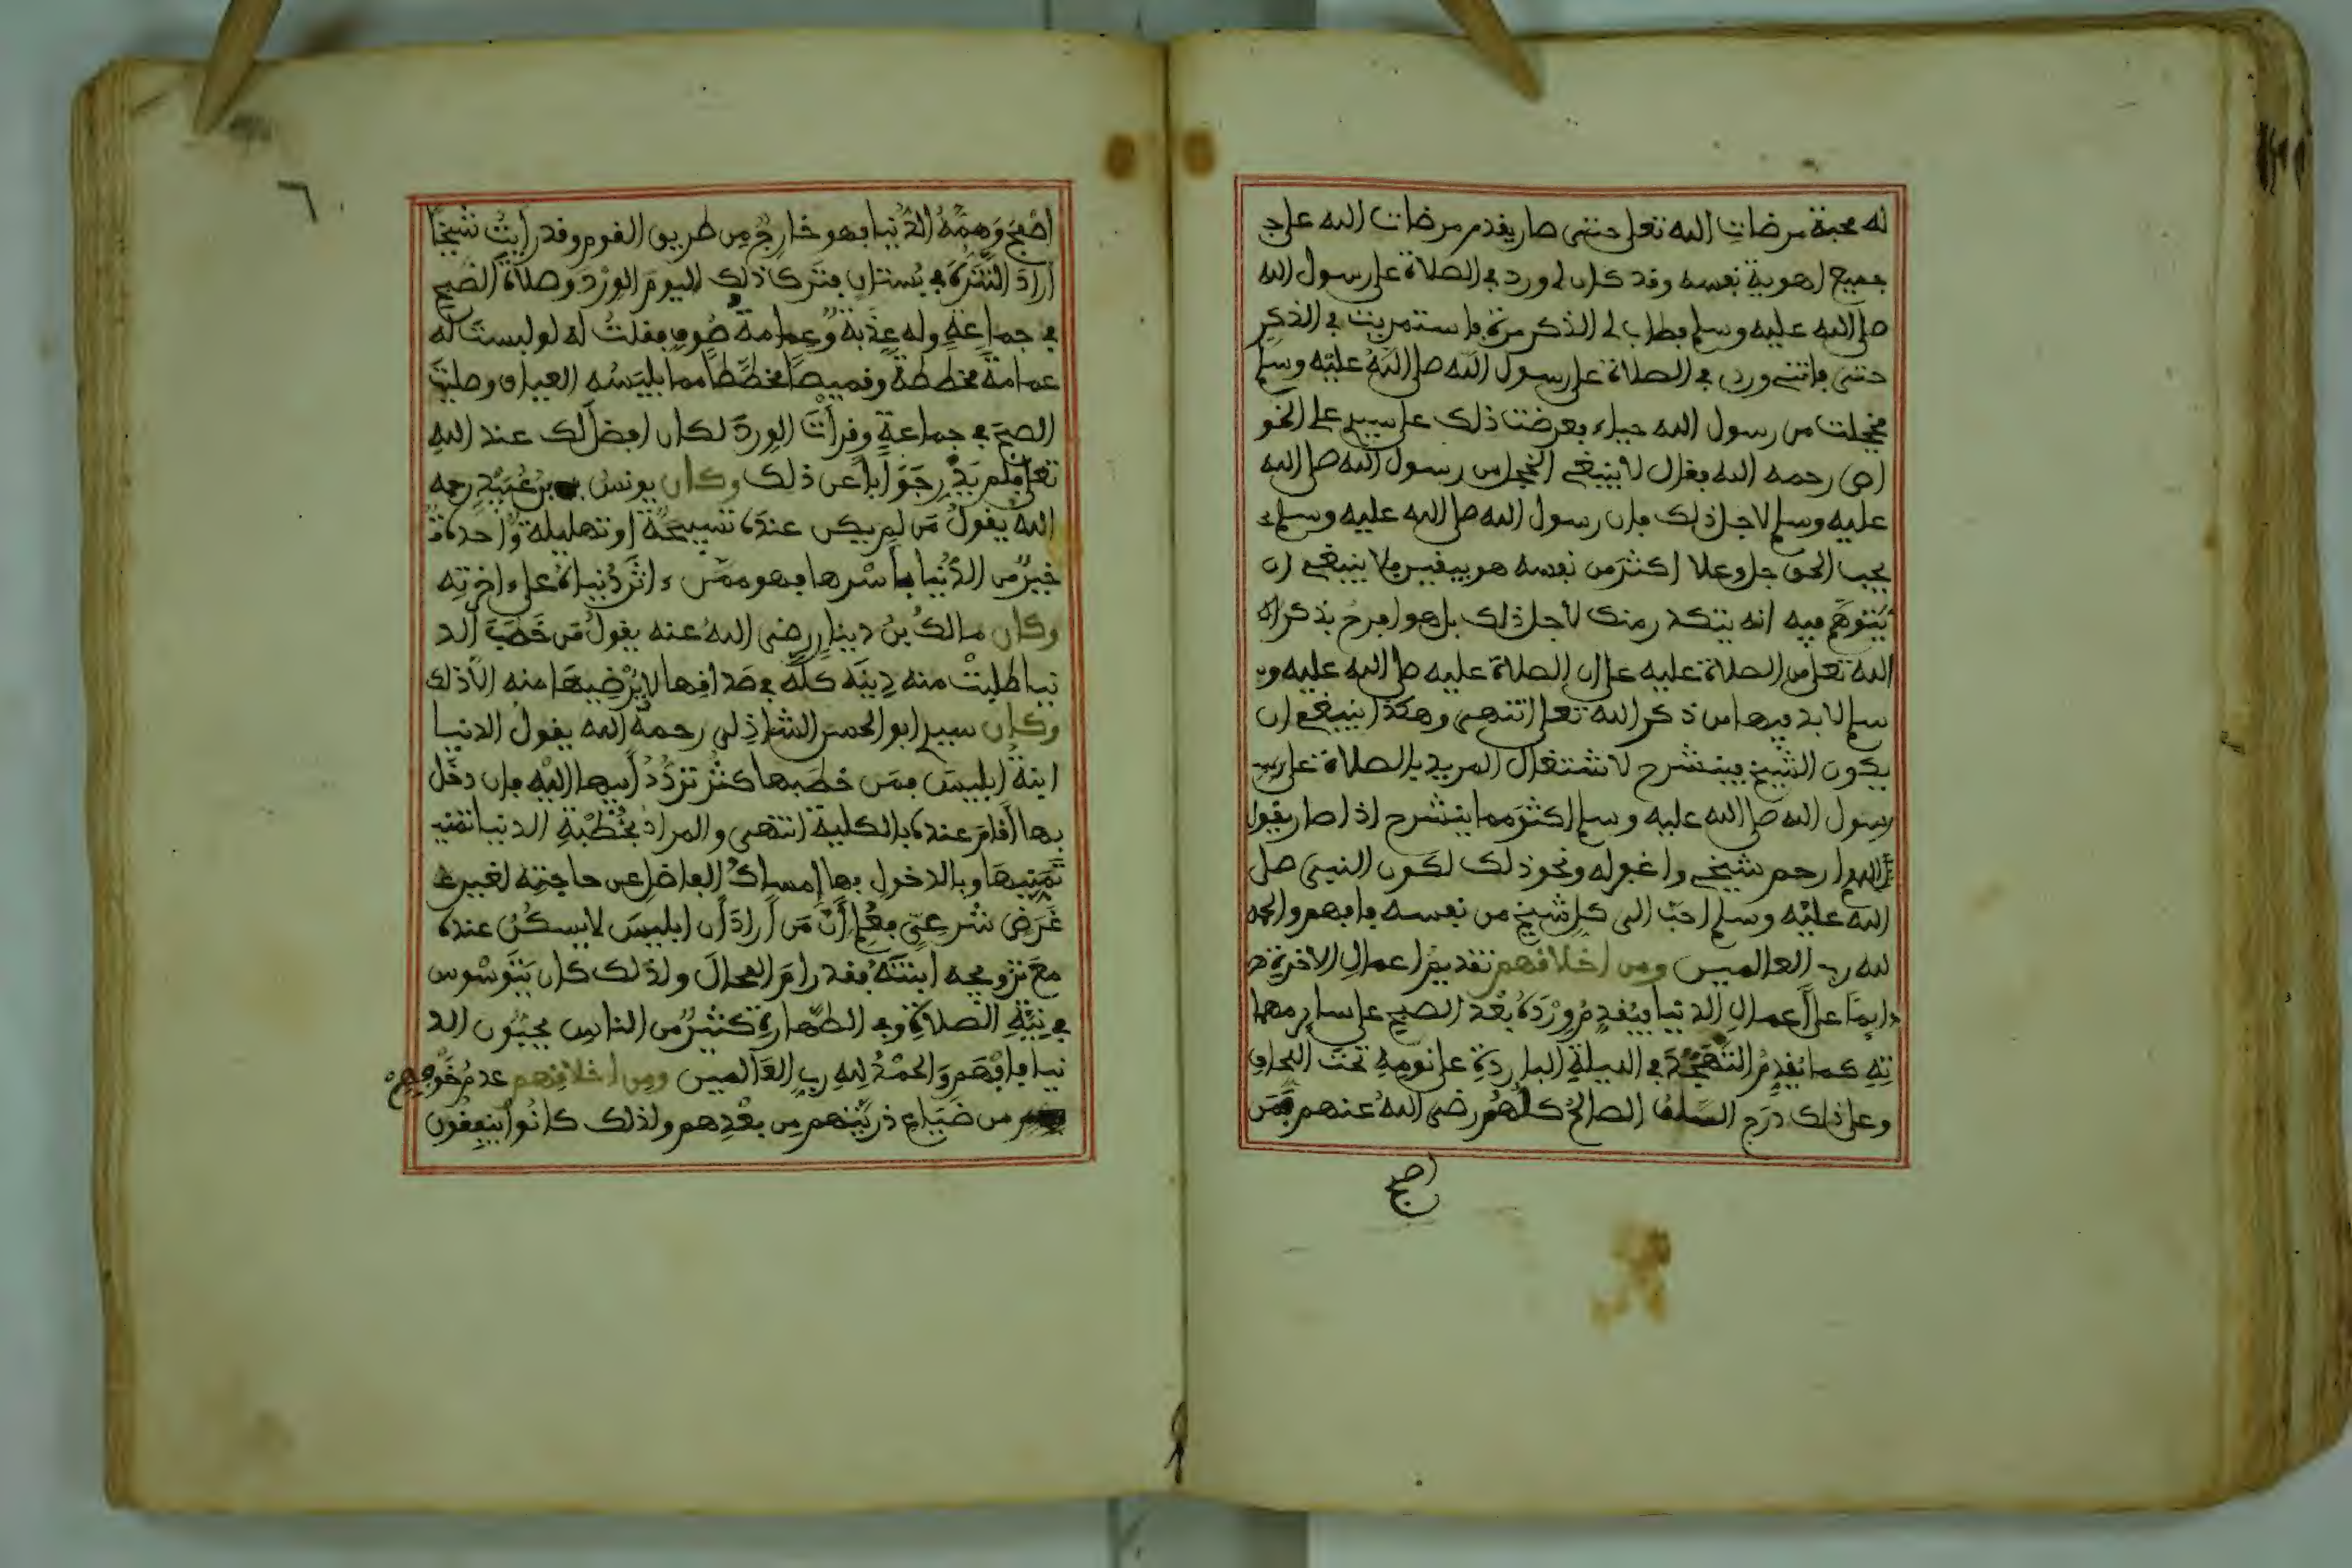 له محبة مرضات الله تعلى حتى صار يقدم مرضات الله على ج
جميع اهوية نفسه وقد كان لى ورد في الصلاة على رسول الله
صلى الله عليه وسلم فطاب لى الذكر مرة فاستمريت في الذكر
حتى فاتنى وردى في الصلاة على رسول الله صلى الله عليه وسلم
فخجلت من رسول الله حياء فعرضت ذلك على سيدى على الخو
اص رحمه الله فقال لا ينبغى الخجل من رسول الله صلى الله
عليه وسلم لاجل ذلك فان رسول الله صلى الله عليه وسلم
يحب الحق جل وعلا اكثر من نفسه هو بيقين فلا ينبغى ان
يتوهم فيه انه يتكدر منك لأجل ذلك بل هو افرح بذكرك
الله تعلى من الصلاة عليه على ان الصلاة عليه صلى الله عليه و
سلم لا بد فيها من ذكر الله تعلى انتهى وهكذا ينبغى ان
يكون الشيخ فينشرح لاشتغال المريد بالصلاة على
رسول الله صلى الله عليه وسلم اكثر مما ينشرح اذا صار يقول
اللهم ارحم شيخى واغفر له ونحو ذلك لكون النبى صلى
الله عليه وسلم احب الى كل شيخ من نفسه فافهم والحمد
لله رب العالمين ومن اخلاقهم تقديم اعمال الاخرة
دايما على أعمال الدنيا فيُقدم وِرْدَهُ بعد الصبح على ساير مهما
تِهِ كما يُقدمُ التهجد في الليلة الباردة على نومه تحت اللحاف
وعلى ذلك درج السلف الصالح كلهم رضى الله عنهم فمن
اصبح
٦
اصْبَحَ وَهِمَّتُهُ الدُّنيا فهو خارج من طريق القوم وقد رأيت شيخا
أرادَ التنزه في بستان فترك ذلك اليومَ الوِرْدَ وصلاةَ الصبح
في جماعة وله عذبة وعمامة صوف فقلت له لو لبست لك
عمامة مخططة وقميصا مخططا مما يلبسه العياق وصليت
الصبح في جماعة وقرأت الورد لكان افضل لك عند الله
تعلى فلم يدر جوابا عن ذلك وكان يونس بن عُبَيْدٍ رحمه
الله يقول من لم يكن عنده تسبيحة او تهليلة واحدة
خير من الدنيا بأسرها فهو ممن ءاثر دنياه على ءاخرته
وكان مالك بن دينار رضى الله عنه يقول من خطب الد
نيا طلبت منه دينه كله في صداقها لا يرضيها منه الا ذلك
وكان سيدى ابو الحسن الشاذلى رحمه الله يقول الدنيا
ابنة ابليس فمن خطبها كثر تردد أبيها اليه فان دخل
بها أقام عنده بالكلية انتهى والمراد بخطبة الدنيا
تمنيها وبالدخول بها إمساك الفاضل عن حاجته لغير
غَرَضٍ شرعى فعلم أن من أراد أن ابليس لا يسكن عنده
مع تزويجه ابنته فقد رام المحال ولذلك كان يتوسوس
في نية الصلاة وفي الطهارة كثير من الناس يحبون الد
نيا فافهم والحمد لله رب العالمين ومن اخلاقهم عدم خوفهم
من ضياع ذريتهم من بعدهم ولذلك كانوا ينفقون